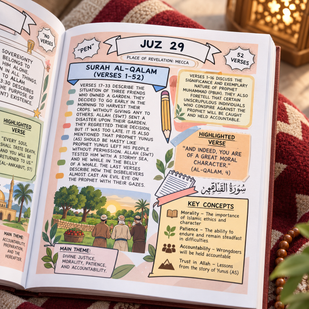 "NO VERSES"
SOVEREIGNTY
BELONGS TO
ALL THINGS,
TO ALLAH
EXISTENCE)
HIGHLIGHTED
VERSE
"EVERY SOUL
RETURNED TO
MAIN THEME:
"PEN"
JUZ 29
PLACE OF REVELATION: MECCA
52
VERSES
SURAH AL-QALAM
(VERSES 1-52)
VERSES 17-33 DESCRIBE THE
SITUATION OF THREE FRIENDS
WHO OWNED A GARDEN. THEY
DECIDED TO GO EARLY IN THE
MORNING TO HARVEST THEIR
CROPS WITHOUT GIVING ANY TO
OTHERS. ALLAH (SWT) SENT A
DISASTER UPON THEIR GARDEN.
THEY REGRETTED THEIR DECISION,
BUT IT WAS TOO LATE. IT IS ALSO
MENTIONED THAT PROPHET YUNUS
(AS) SHOULD BE HASTY LIKE
PROPHET YUNUS LEFT HIS PEOPLE
WITHOUT PERMISSION. ALLAH (SWT)
TESTED HIM WITH A STORMY SEA,
AND HE WHILE IN THE BELLY
OF A WHALE. THE LAST VERSES
DESCRIBE HOW THE DISBELIEVERS
ALMOST CAST AN EVIL EYE ON
THE PROPHET WITH THEIR GAZES.
MAIN THEME:
DIVINE JUSTICE,
MORALITY, PATIENCE,
AND ACCOUNTABILITY.
VERSES 1-16 DISCUSS THE
SIGNIFICANCE AND EXEMPLARY
NATURE OF PROPHET
MUHAMMAD (PBUH). THEY ALSO
FORETELL THAT CERTAIN
UNSCRUPULOUS INDIVIDUALS
WHO CONSPIRE AGAINST THE
PROPHET WILL BE CAUGHT
AND HELD ACCOUNTABLE.
HIGHLIGHTED
VERSE
"AND INDEED, YOU ARE
OF A GREAT MORAL
CHARACTER."
(AL-QALAM, 4)
KEY CONCEPTS
Morality – The importance
of Islamic ethics and
character
Patience – The ability to
endure and remain steadfast
in difficulties
Accountability – Wrongdoers
will be held accountable
Trust in Allah – Lessons
from the story of Yunus (AS)